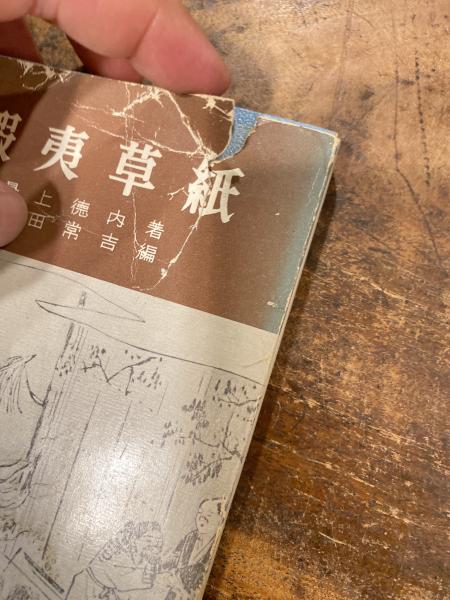 蝦夷草紙
最上徳内著
田常吉編